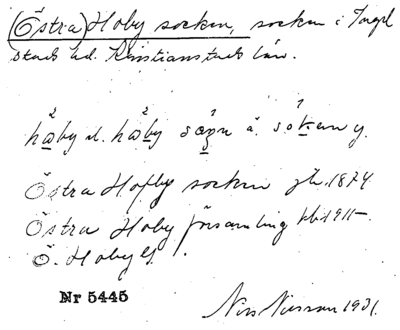 (Östra) Hoby socken, socken i Ingel
stads hd. Kristianstads län.
håby el. håby sogn ä. sokan y.
Östra Hofby socken jb. 1874
Östra Hoby församling kb 1911–
Ö. Hoby
Nr 5445
Nils Nilsson 1931.